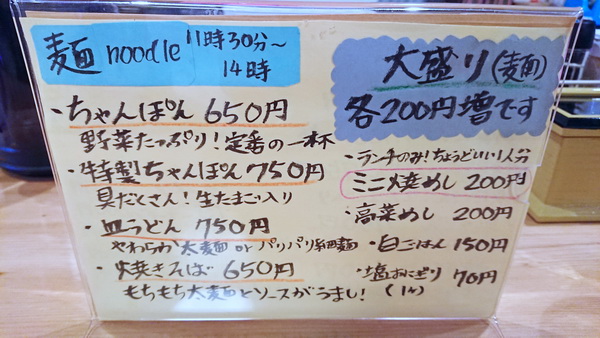 麺 noodle 11時30分～
14時
・ちゃんぽん 650円
野菜たっぷり！定番の一杯
・特製ちゃんぽん 750円
具だくさん！生たまご入り
・皿うどん 750円
やわらか太麺 or パリパリ細麺
・焼きそば 650円
もちもち太麺とソースがうまい！
大盛り(麺)
各200円増です
・ランチのみ！ちょうどいい1人分
ミニ焼めし 200円
・高菜めし 200円
・白ごはん 150円
・塩おにぎり 70円
(1ケ)